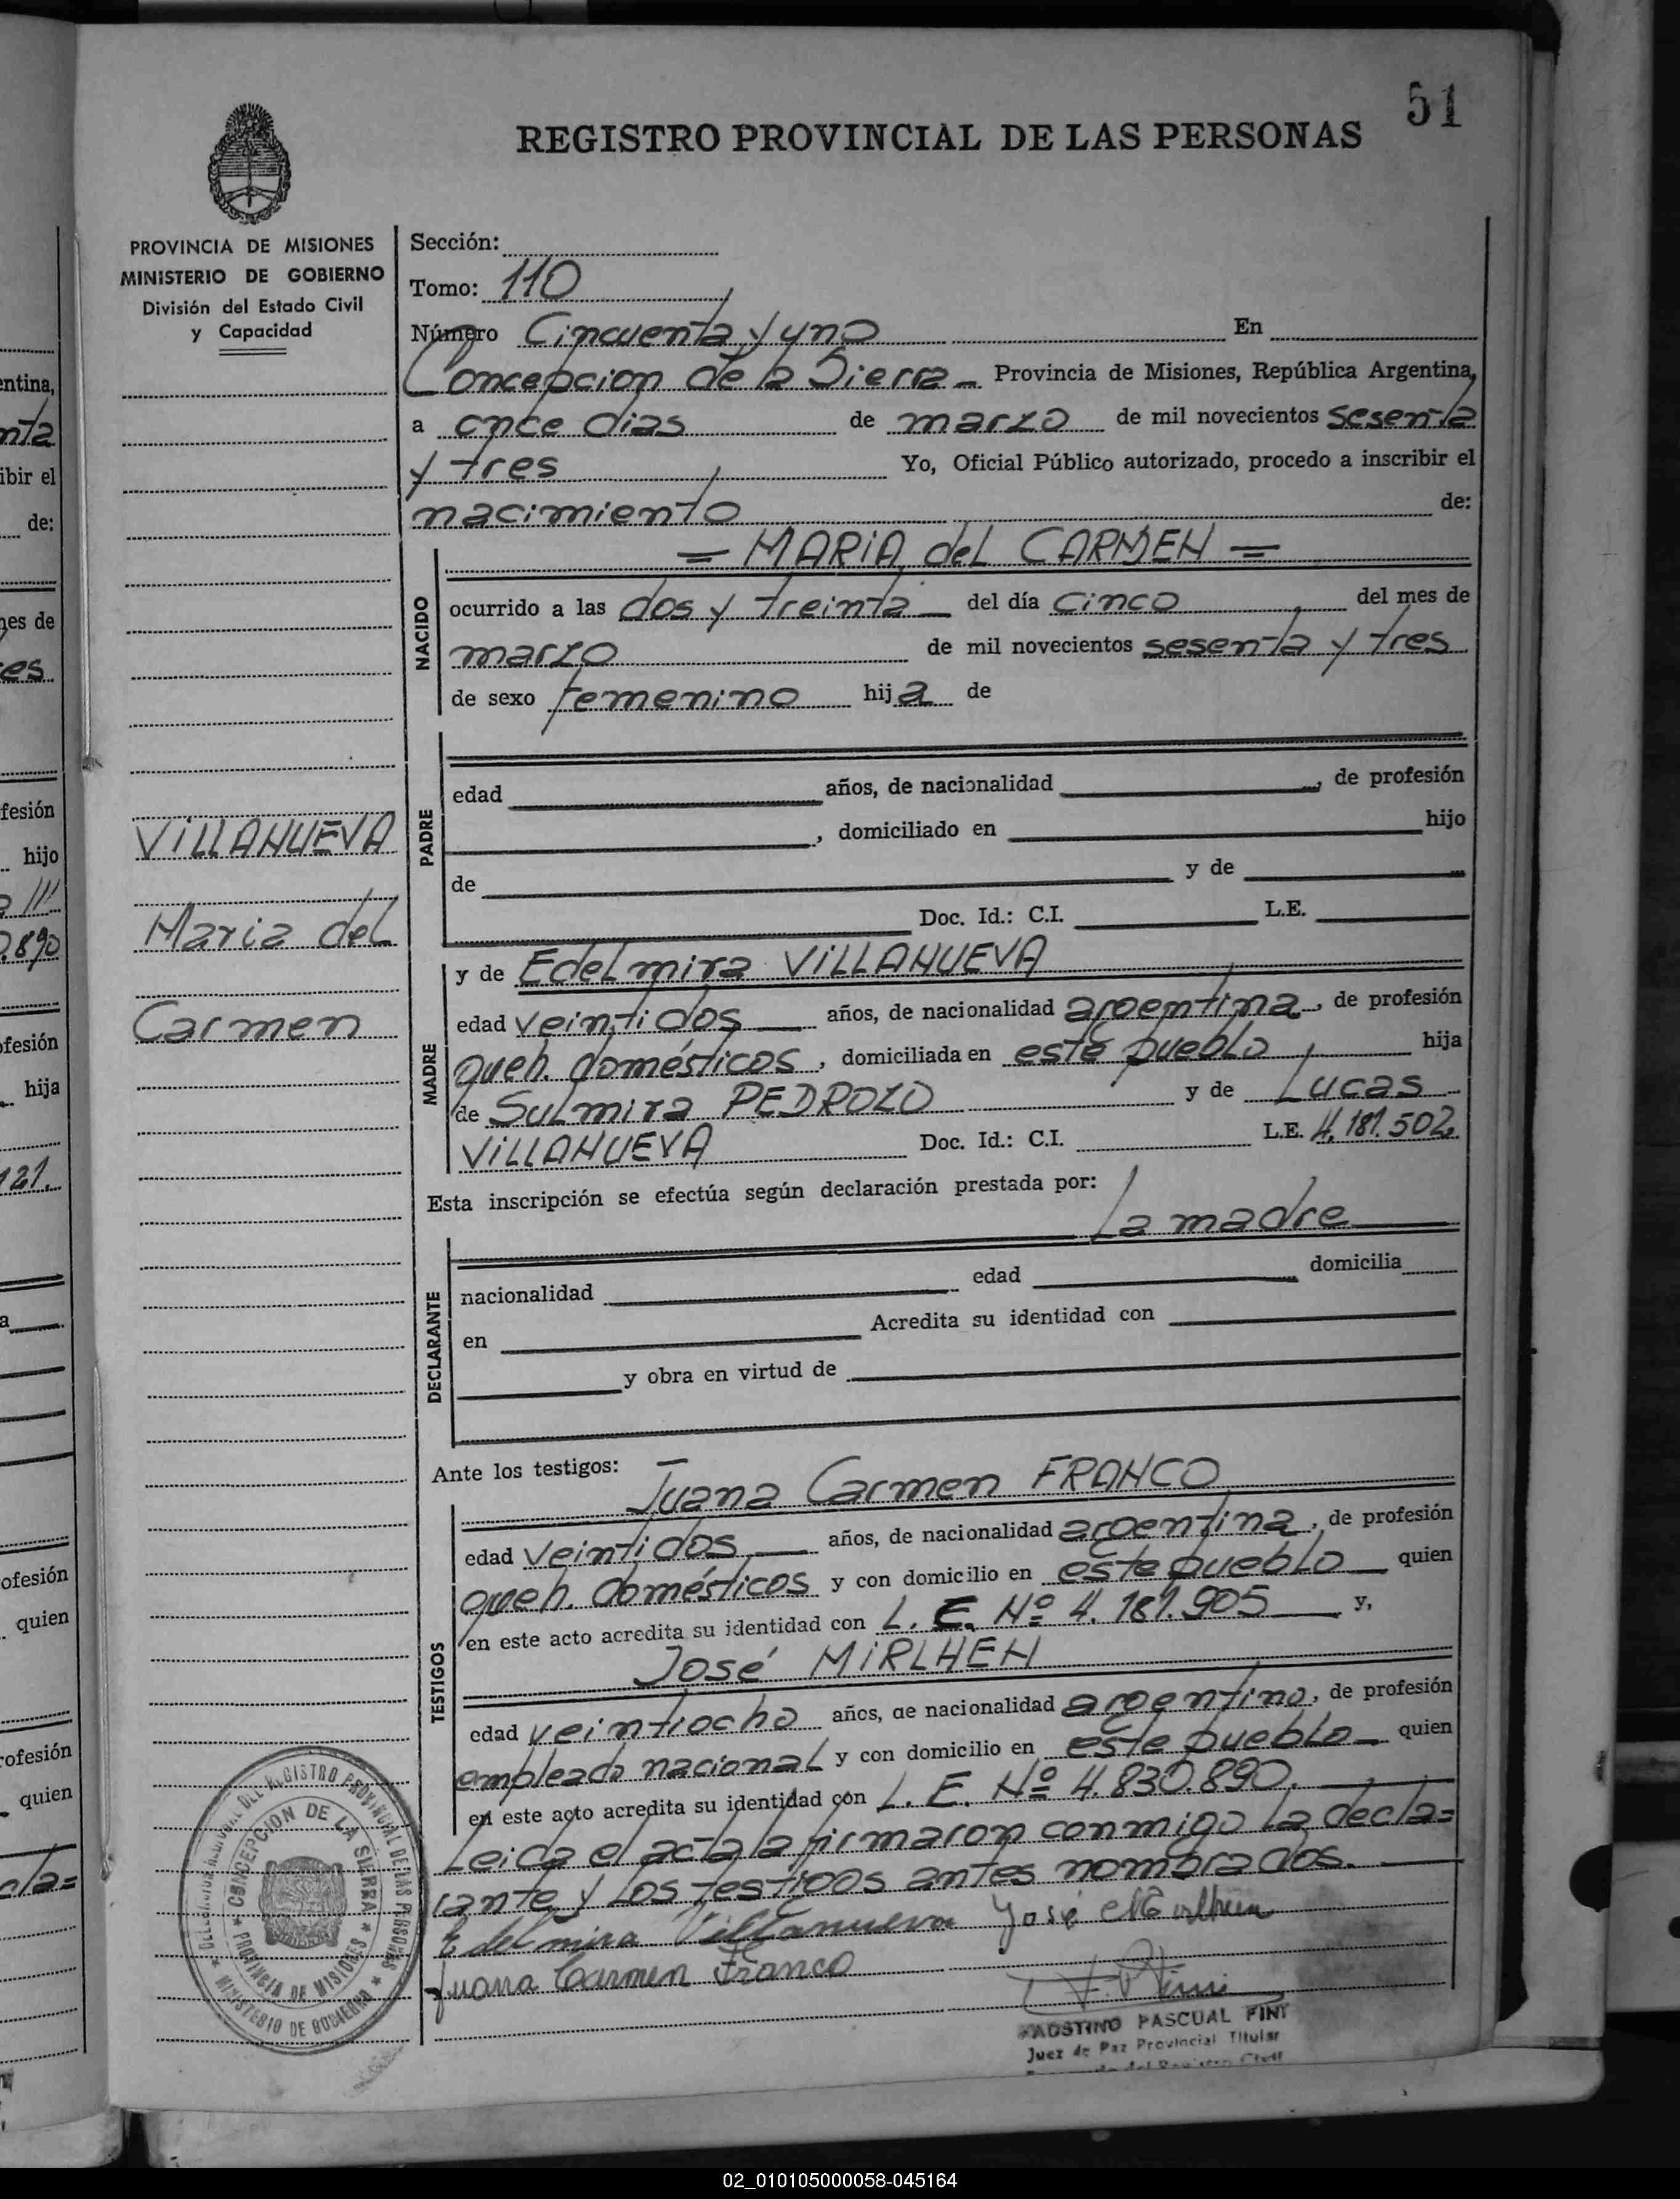 51
REGISTRO PROVINCIAL DE LAS PERSONAS
PROVINCIA DE MISIONES
MINISTERIO DE GOBIERNO
División del Estado Civil
y Capacidad
Sección:
Tomo: 110
Número Cincuenta y uno En
Concepcion de la Sierra Provincia de Misiones, República Argentina,
a once dias de marzo de mil novecientos sesenta
y tres Yo, Oficial Público autorizado, procedo a inscribir el
nacimiento de:
= MARIA del CARMEN =
NACIDO
ocurrido a las dos y treinta del día cinco del mes de
marzo de mil novecientos sesenta y tres
de sexo femenino hija de
PADRE
edad años, de nacionalidad , de profesión
, domiciliado en hijo
de y de
Doc. Id.: C.I. L.E.
VILLANUEVA
Maria del
Carmen
MADRE
y de Edelmira VILLANUEVA
edad veintidos años, de nacionalidad argentina, de profesión
queh. domésticos, domiciliada en este pueblo hija
de Sulmira PEDROZO y de Lucas
VILLANUEVA Doc. Id.: C.I. L.E. 4.181.502
Esta inscripción se efectúa según declaración prestada por:
La madre
DECLARANTE
nacionalidad edad domicilia
en Acredita su identidad con
y obra en virtud de
Ante los testigos: Juana Carmen FRANCO
TESTIGOS
edad veintidos años, de nacionalidad argentina, de profesión
queh. domésticos y con domicilio en este pueblo quien
en este acto acredita su identidad con L. E. Nº 4.181.905 y,
José MIRLHEN
edad veintiocho años, de nacionalidad argentino, de profesión
empleado nacional y con domicilio en este pueblo quien
en este acto acredita su identidad con L. E. Nº 4.830.890.
Leida el acta la firmaron conmigo la decla=
rante y los testigos antes nombrados.
Edelmira Villanueva José Mirlhen
Juana Carmen Franco
AGOSTINO PASCUAL FINI
Juez de Paz Provincial Titular
DEL REGISTRO PROVINCIAL DE LAS PERSONAS
MINISTERIO DE GOBIERNO
CONCEPCION DE LA SIERRA
PROVINCIA DE MISIONES
entina,
nta
ibir el
de:
nes de
es
fesión
hijo
.890
ofesión
hija
121.
a
ofesión
quien
rofesión
quien
cla=
02_010105000058-045164